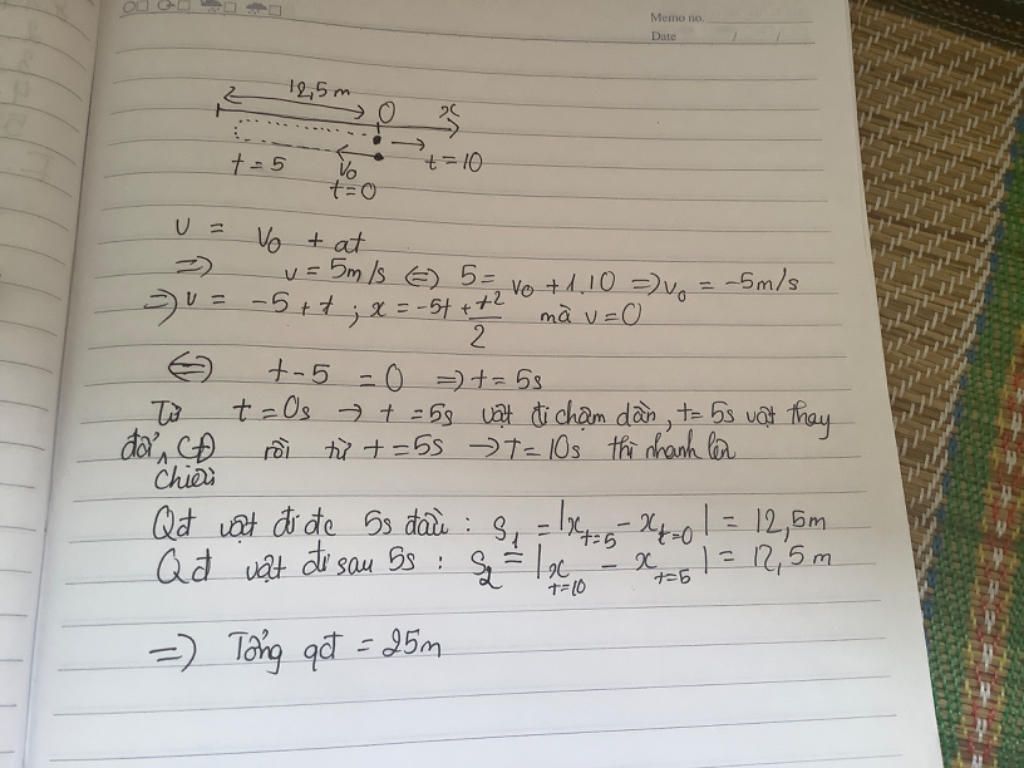 Memo no.
Date / /
12,5m
O x
t=5 v₀ t=10
t=0
v = v₀ + at
=> v = 5m/s <=> 5 = v₀ + 1.10 => v₀ = -5m/s
=> v = -5 + t ; x = -5t + t²/2 mà v=0
<=> t-5 = 0 => t = 5s
Từ t = 0s → t = 5s vật đi chậm dần, t=5s vật thay
đổi chiều (+) rồi từ t = 5s → t = 10s thì nhanh lên
Qđ vật đi đc 5s đầu : S₁ = |x t=5 - x t=0| = 12,5m
Qđ vật đi sau 5s : S₂ = |x t=10 - x t=5| = 12,5m
=> Tổng qđ = 25m